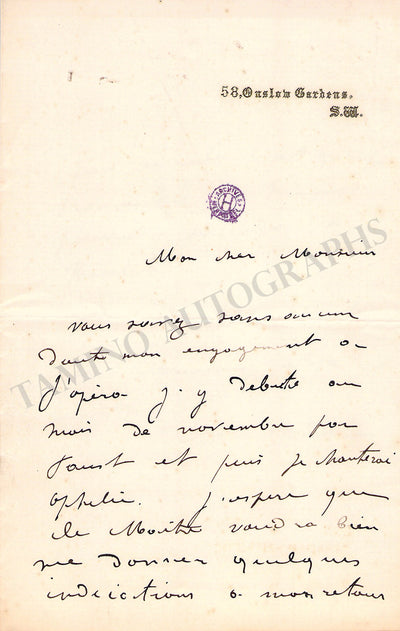 58, Onslow Gardens.
S.W.
ARCHIVES
H
Mon cher Monsieur
Vous savez sans aucun
doute mon engagement a
l'opera j'y debute au
mois de novembre par
Faust et puis je chanterai
Ophelie. J'espere que
le Maitre voudra bien
me donner quelques
indications a mon retour
TAMINO AUTOGRAPHS